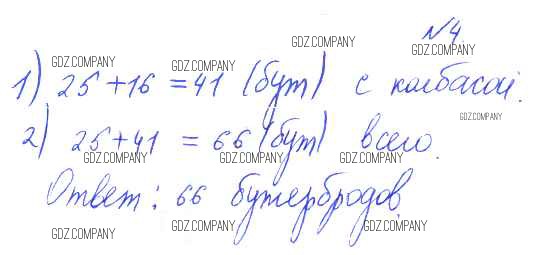 №4
GDZ.COMPANY
GDZ.COMPANY GDZ.COMPANY
1) 25 + 16 = 41 (бут) с колбасой.
GDZ.COMPANY
2) 25 + 41 = 66 (бут) всего.
GDZ.COMPANY GDZ.COMPANY GDZ.COMPANY
Ответ: 66 бутербродов.
GDZ.COMPANY GDZ.COMPANY
GDZ.COMPANY